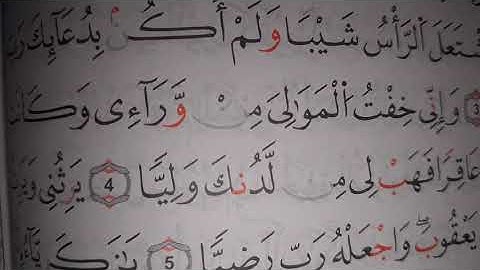 شْتَعَلَ اَ۬لرَّأْسُ شَيْبًا وَلَمْ أَكُنۢ بِدُعَآئِكَ
3 وَإِنِّى خِفْتُ اُ۬لْمَوَٰلِىَ مِنْ وَّرَآءِى
عَاقِرًا فَهَبْ لِى مِن لَّدُنكَ وَلِيًّا 4 يَرِثُنِى
يَعْقُوبَۖ وَاجْعَلْهُ رَبِّ رَضِيًّا 5